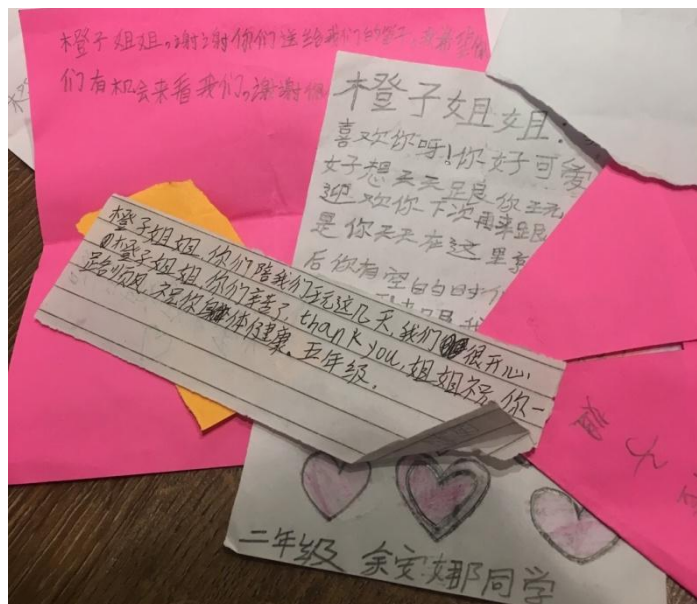 橙子姐姐。谢谢你们送给我们的
们有机会来看我们。谢谢你
橙子姐姐.
喜欢你呀!你好可爱
好想天天跟你玩
迎欢你下次再来跟
是你天天在这里
后你有空的时
橙子姐姐,你们陪我们玩这几天,我们很开心.
橙子姐姐,你们辛苦了,thank you,姐姐祝你一
路顺风,祝你身体健康.五年级.
二年级 余安娜同学